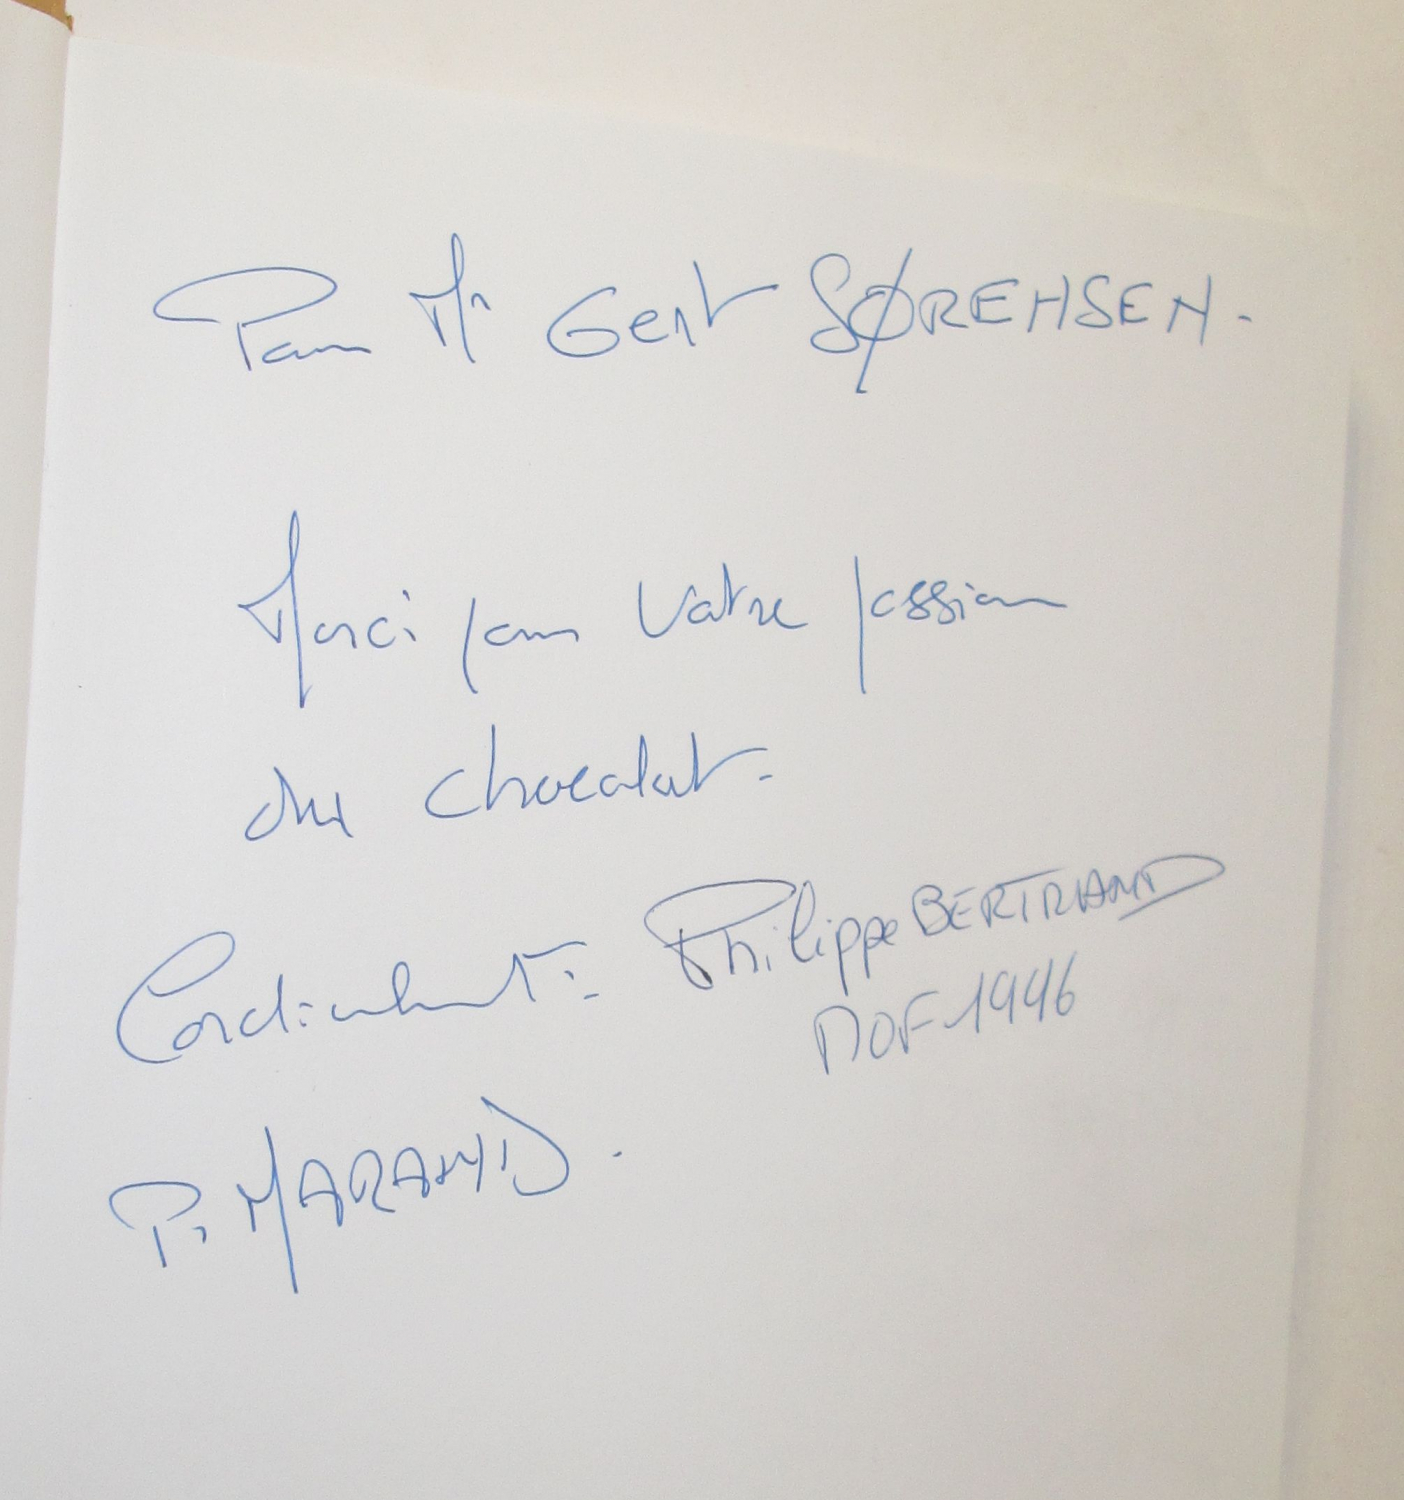 Pour Mr Gert SØRENSEN.
Merci pour votre passion
du chocolat.
Cordialement.
Philippe BERTRAND
MOF 1996
P. MARAND.